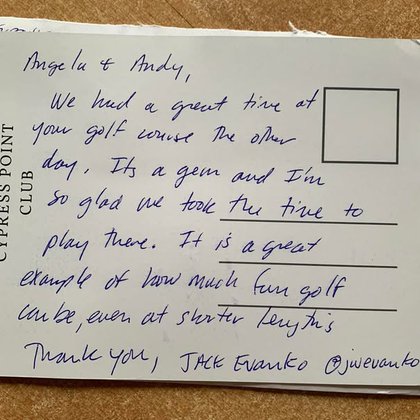 Angela & Andy,
We had a great time at
your golf course the other
day. Its a gem and I'm
so glad we took the time to
play there. It is a great
example of how much fun golf
can be, even at shorter lengths
Thank you, JACK EVANKO @jwevanko
CYPRESS POINT
CLUB